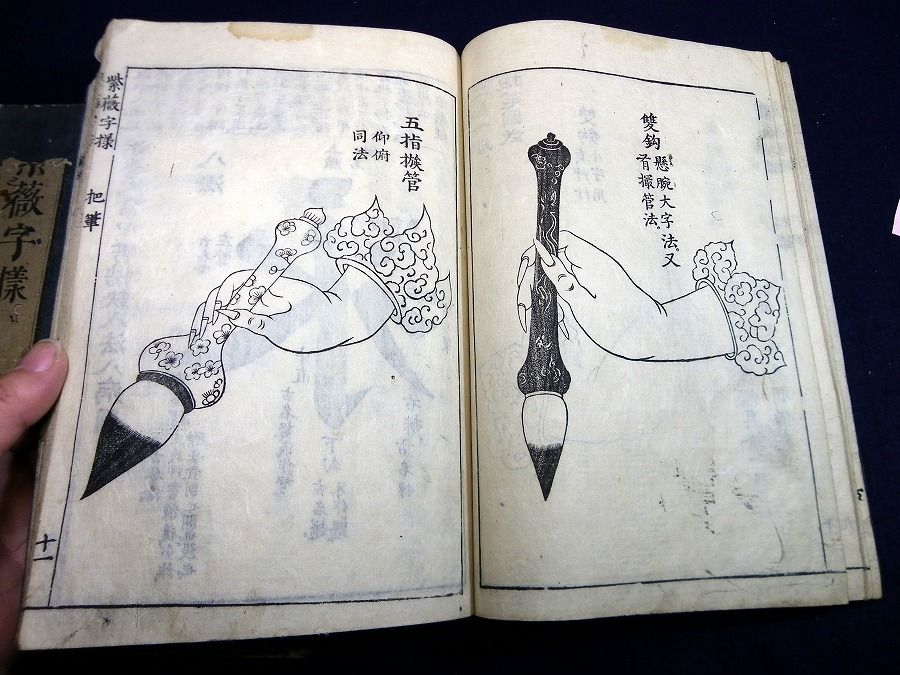 雙鈎
懸腕大字法又
有撮管法
五指撮管
仰俯
同法
紫薇字樣
把筆
十一
薇字樣